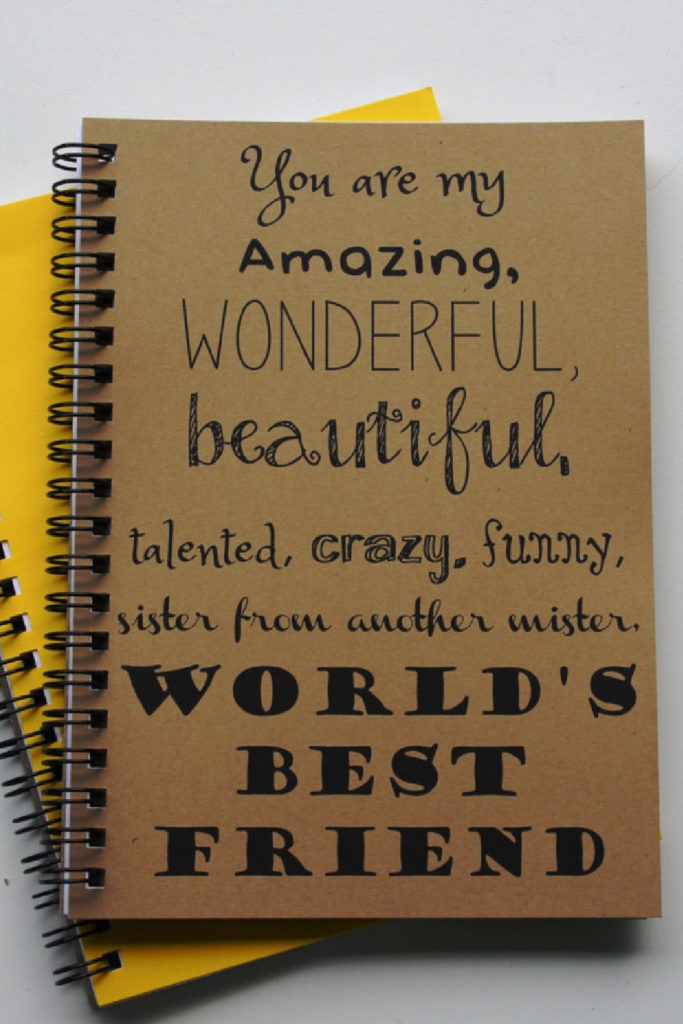 You are my
Amazing,
WONDERFUL,
beautiful,
talented, crazy, funny,
sister from another mister,
WORLD'S
BEST
FRIEND